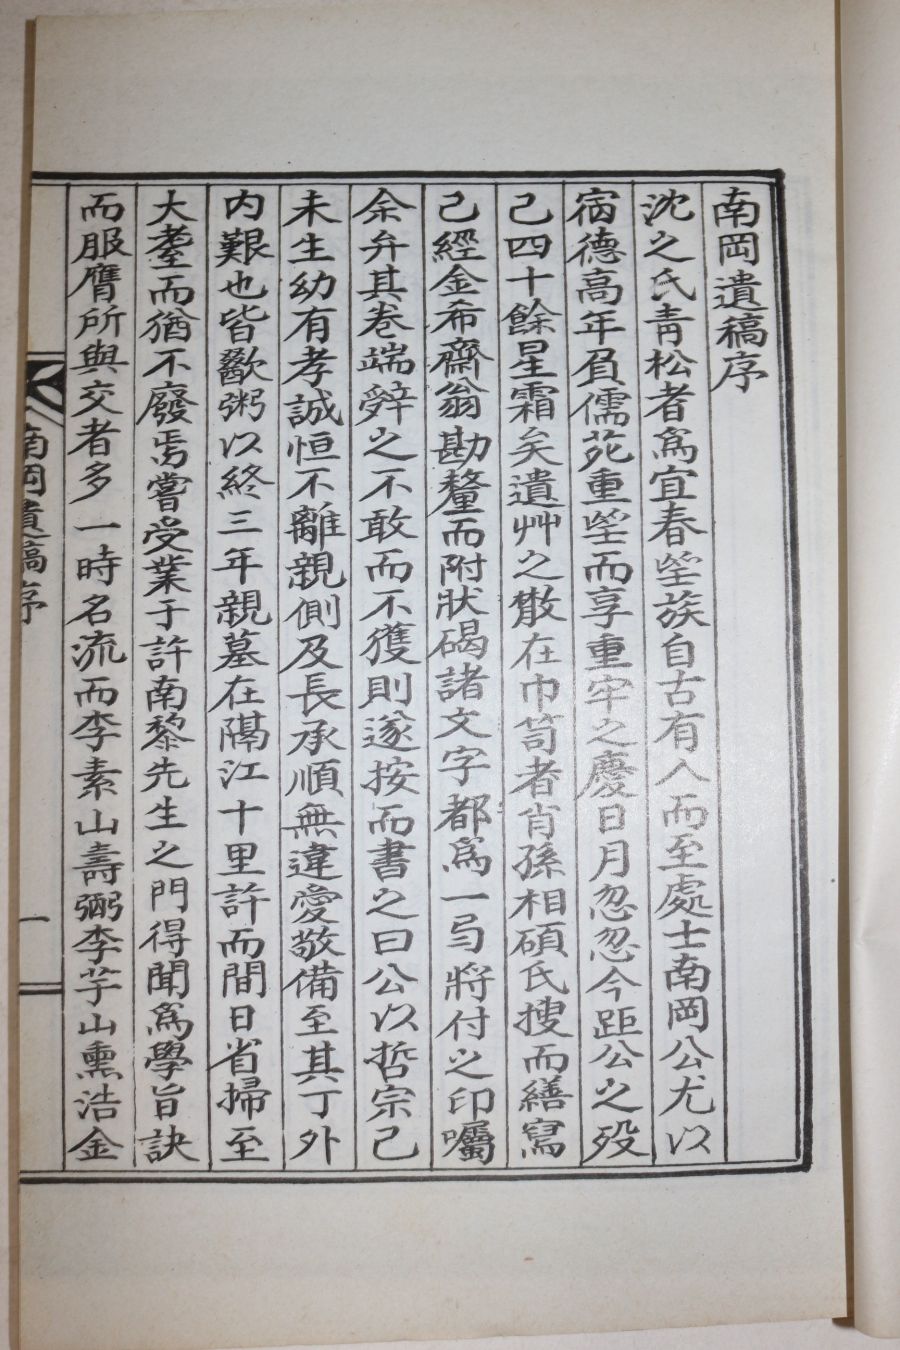 南岡遺稿序
沈之氏靑松者爲宜春望族自古有人而至處士南岡公尤以
宿德高年負儒苑重望而享重牢之慶日月忽忽今距公之歿
已四十餘星霜矣遺艸之散在巾笥者肖孫相碩氏搜而繕寫
已經金希齋翁勘釐而附狀碣諸文字都爲一弓將付之印囑
余弁其卷端辭之不敢而不獲則遂按而書之曰公以哲宗己
未生幼有孝誠恒不離親側及長承順無違愛敬備至其丁外
內艱也皆歠粥以終三年親墓在隔江十里許而間日省掃至
大耋而猶不廢焉嘗受業于許南黎先生之門得聞爲學旨訣
而服膺所與交者多一時名流而李素山壽弼李芋山熏浩金
南岡遺稿序
一